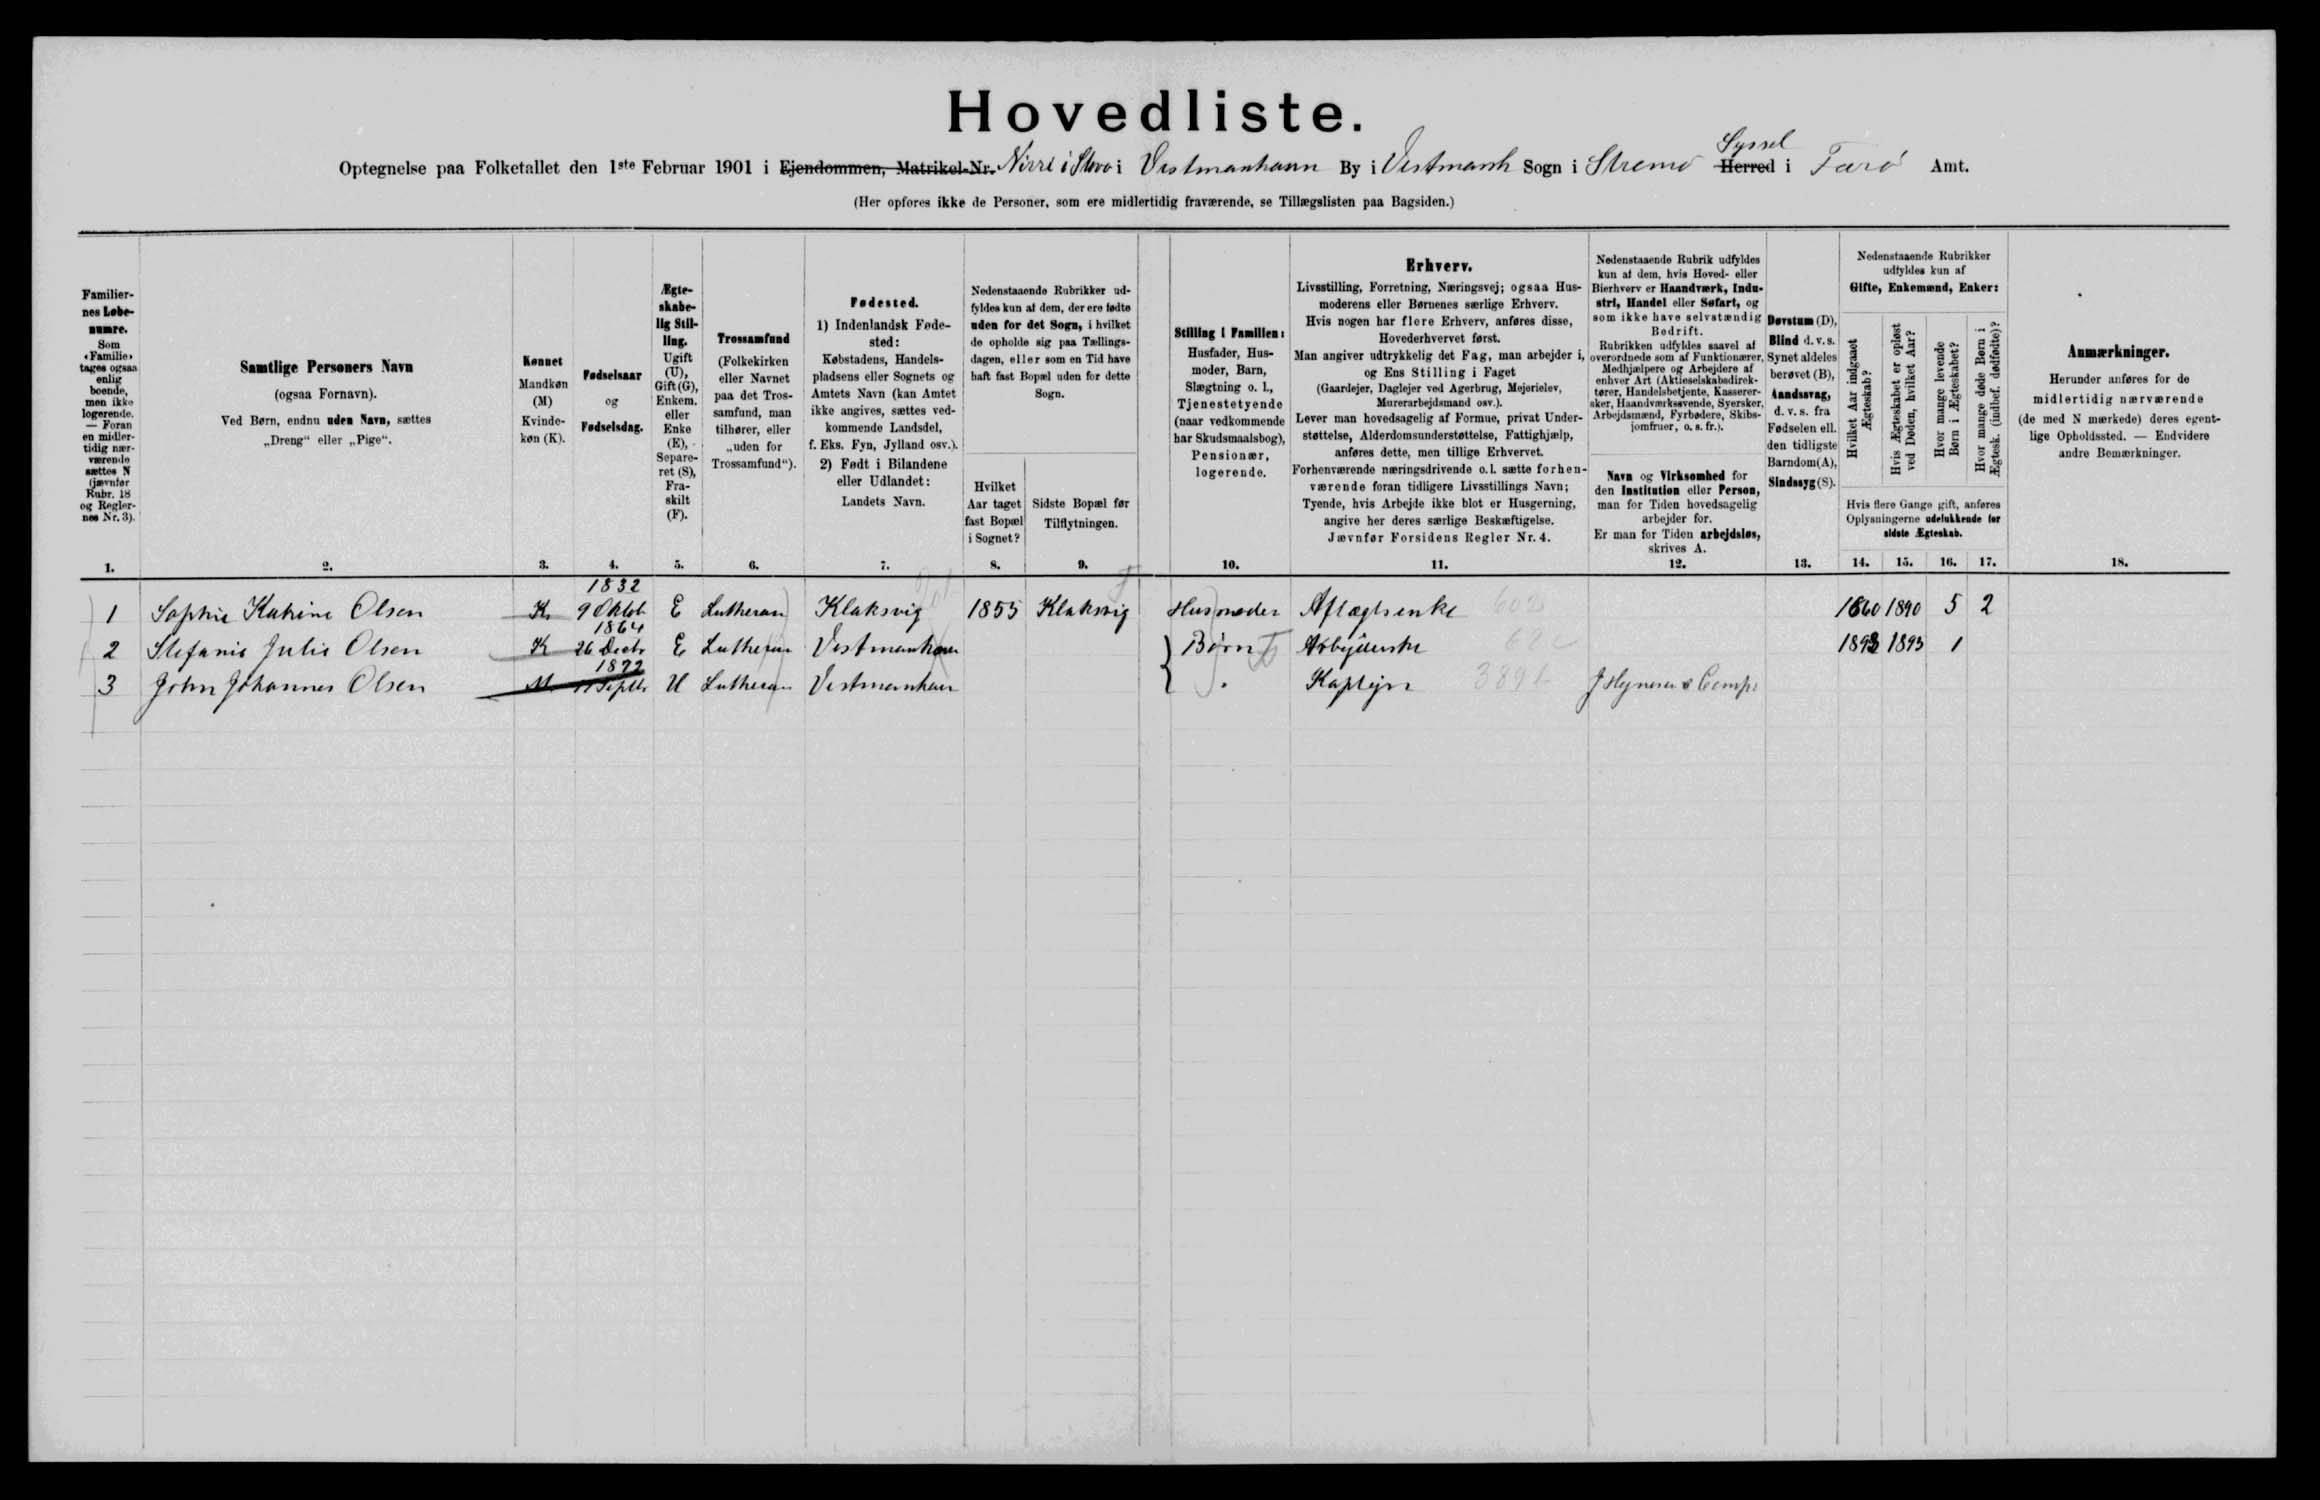 Hovedliste.
Syssel
Optegnelse paa Folketallet den 1ste Februar 1901 i Ejendommen, Matrikel-Nr. i Vestmanhavn By i Vestmanh Sogn i Strømø Herred i Færø Amt.
(Her opføres ikke de Personer, som ere midlertidig fraværende, se Tillægslisten paa Bagsiden.)
Familier-
nes Løbe-
numre.
Som
«Familie»
tages ogsaa
enlig
boende,
men ikke
logerende.
— Foran
en midler-
tidig nær-
værende
sættes N
(jævnfør
Rubr. 18
og Regler-
nes Nr. 3).
1.
Samtlige Personers Navn
(ogsaa Fornavn).
Ved Børn, endnu uden Navn, sættes
„Dreng“ eller „Pige“.
2.
Kønnet
Mandkøn
(M)
Kvinde-
køn (K).
3.
Fødselsaar
og
Fødselsdag.
4.
Ægte-
skabe-
lig Stil-
ling.
Ugift
(U),
Gift (G),
Enkem.
eller
Enke
(E),
Separe-
ret (S),
Fra-
skilt
(F).
5.
Trossamfund
(Folkekirken
eller Navnet
paa det Tros-
samfund, man
tilhører, eller
„uden for
Trossamfund“).
6.
Fødested.
1) Indenlandsk Føde-
sted:
Købstadens, Handels-
pladsens eller Sognets og
Amtets Navn (kan Amtet
ikke angives, sættes ved-
kommende Landsdel,
f. Eks. Fyn, Jylland osv.).
2) Født i Bilandene
eller Udlandet:
Landets Navn.
7.
Nedenstaaende Rubrikker ud-
fyldes kun af dem, der ere fødte
uden for det Sogn, i hvilket
de opholde sig paa Tællings-
dagen, eller som en Tid have
haft fast Bopæl uden for dette
Sogn.
Hvilket
Aar taget
fast Bopæl
i Sognet?
8.
Sidste Bopæl før
Tilflytningen.
9.
Stilling i Familien:
Husfader, Hus-
moder, Barn,
Slægtning o. l.,
Tjenestetyende
(naar vedkommende
har Skudsmaalsbog),
Pensionær,
logerende.
10.
Erhverv.
Livsstilling, Forretning, Næringsvej; ogsaa Hus-
moderens eller Børnenes særlige Erhverv.
Hvis nogen har flere Erhverv, anføres disse,
Hovederhvervet først.
Man angiver udtrykkelig det Fag, man arbejder i,
og Ens Stilling i Faget
(Gaardejer, Daglejer ved Agerbrug, Mejerielev,
Murerarbejdsmand osv.).
Lever man hovedsagelig af Formue, privat Under-
støttelse, Alderdomsunderstøttelse, Fattighjælp,
anføres dette, men tillige Erhvervet.
Forhenværende næringsdrivende o. l. sætte forhen-
værende foran tidligere Livsstillings Navn;
Tyende, hvis Arbejde ikke blot er Husgerning,
angive her deres særlige Beskæftigelse.
Jævnfør Forsidens Regler Nr. 4.
11.
Nedenstaaende Rubrik udfyldes
kun af dem, hvis Hoved- eller
Bierhverv er Haandværk, Indu-
stri, Handel eller Søfart, og
som ikke have selvstændig
Bedrift.
Rubrikken udfyldes saavel af
overordnede som af Funktionærer,
Medhjælpere og Arbejdere af
enhver Art (Aktieselskabsdirek-
tører, Handelsbetjente, Kasserer-
sker, Haandværkssvende, Syersker,
Arbejdsmænd, Fyrbødere, Skibs-
jomfruer, o. s. fr.).
Navn og Virksomhed for
den Institution eller Person,
man for Tiden hovedsagelig
arbejder for.
Er man for Tiden arbejdsløs,
skrives A.
12.
Døvstum (D),
Blind d. v. s.
Synet aldeles
berøvet (B),
Aandssvag,
d. v. s. fra
Fødselen ell.
den tidligste
Barndom (A),
Sindssyg (S).
13.
Nedenstaaende Rubrikker
udfyldes kun af
Gifte, Enkemænd, Enker:
Hvilket Aar indgaaet
Ægteskab?
Hvis Ægteskabet er opløst
ved Døden, hvilket Aar?
Hvor mange levende
Børn i Ægteskabet?
Hvor mange døde Børn i
Ægtesk. (indbef. dødfødte)?
Hvis flere Gange gift, anføres
Oplysningerne udelukkende for
sidste Ægteskab.
14. 15. 16. 17.
Anmærkninger.
Herunder anføres for de
midlertidig nærværende
(de med N mærkede) deres egent-
lige Opholdssted. — Endvidere
andre Bemærkninger.
18.
1832
1 Sophie Katrine Olsen K 9 Oktob E Lutheran Klaksvig 1855 Klaksvig Husmoder Aflægtsenke 1860 1890 5 2
1864
2 Stefanie Julie Olsen K 26 Decbr E Lutheran Vestmanhavn Børn 1893 1893 1
1872
3 John Johannes Olsen M Septbr U Lutheran Vestmanhavn Kaptejn 389